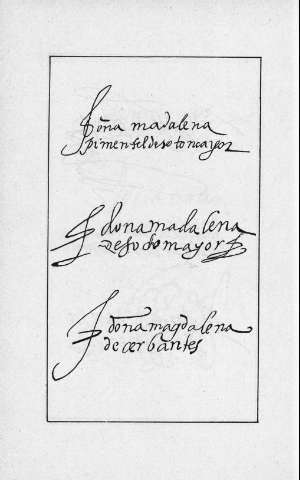 doña madalena
pimenteldesotomayor
dona madalena
desotomayor
doña magdalena
de cerbantes